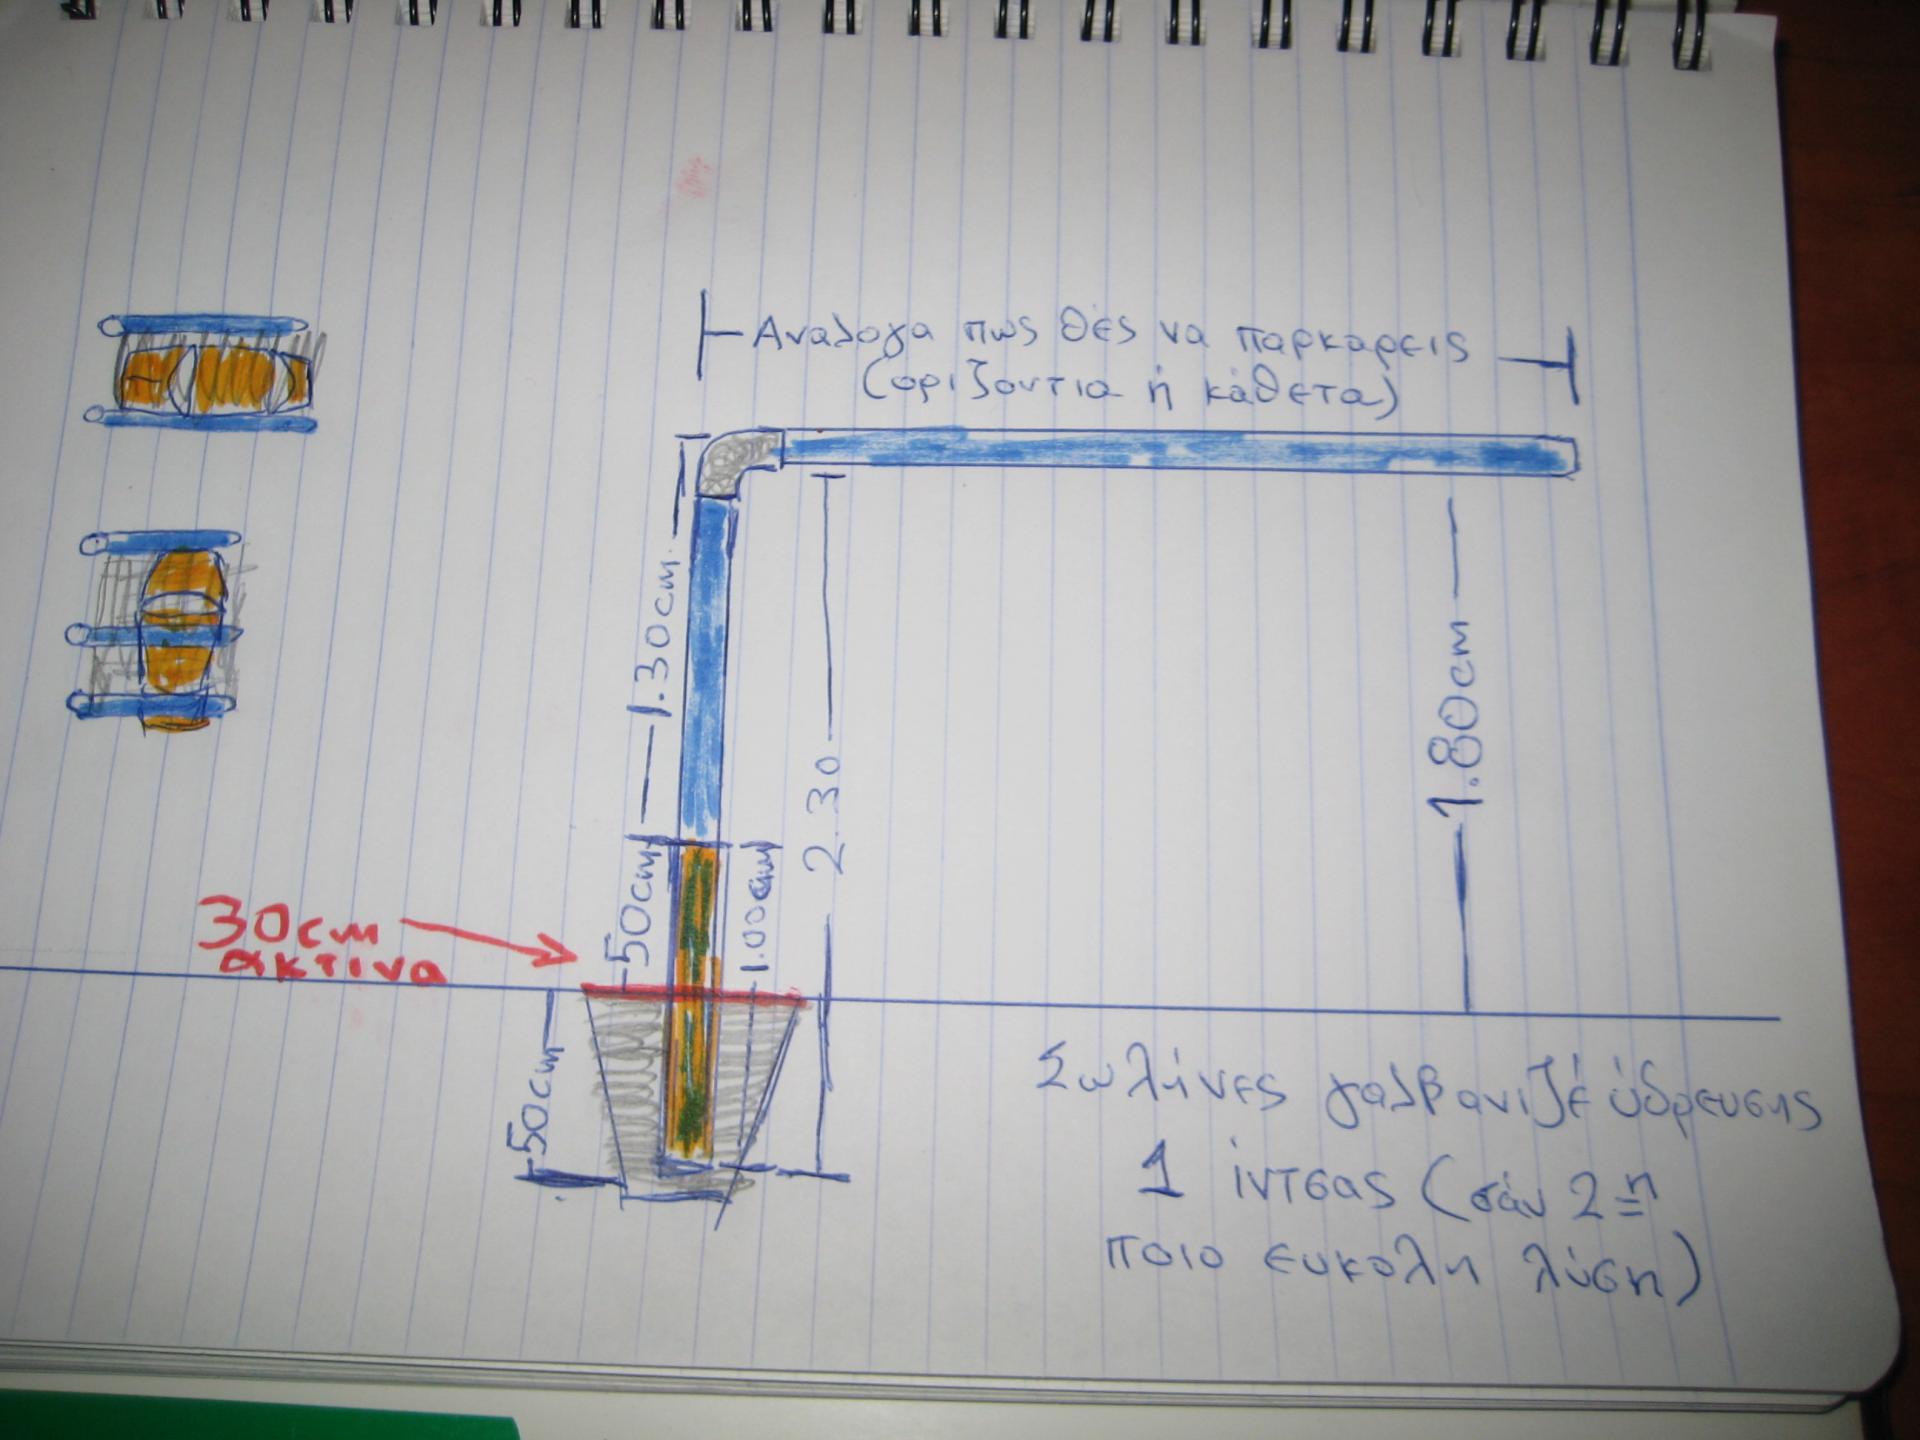 Αναλογα πως θές να παρκαρεις
(οριζοντια ή κάθετα)
1.30cm
2.30
1.80cm
50cm
1.00cm
30cm
ακτινα
50cm
Σωλήνες γαλβανιζέ ύδρευσης
1 ίντσας (σάν 2η
ποιο ευκολη λύση)